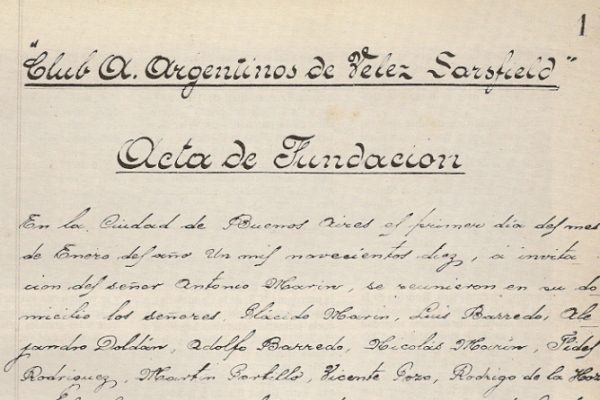 1
"Club A. Argentinos de Velez Sarsfield"
Acta de Fundacion
En la Ciudad de Buenos Aires el primer dia del mes
de Enero del año Un mil novecientos diez, á invita
cion del señor Antonio Marin, se reunieron en su do
micilio los señores. Plácido Marin, Luis Barredo, Ale
jandro Doldán, Adolfo Barredo, Nicolás Marín, Fidel
Rodriguez, Martin Portillo, Vicente Pozo, Rodrigo de la Hoz